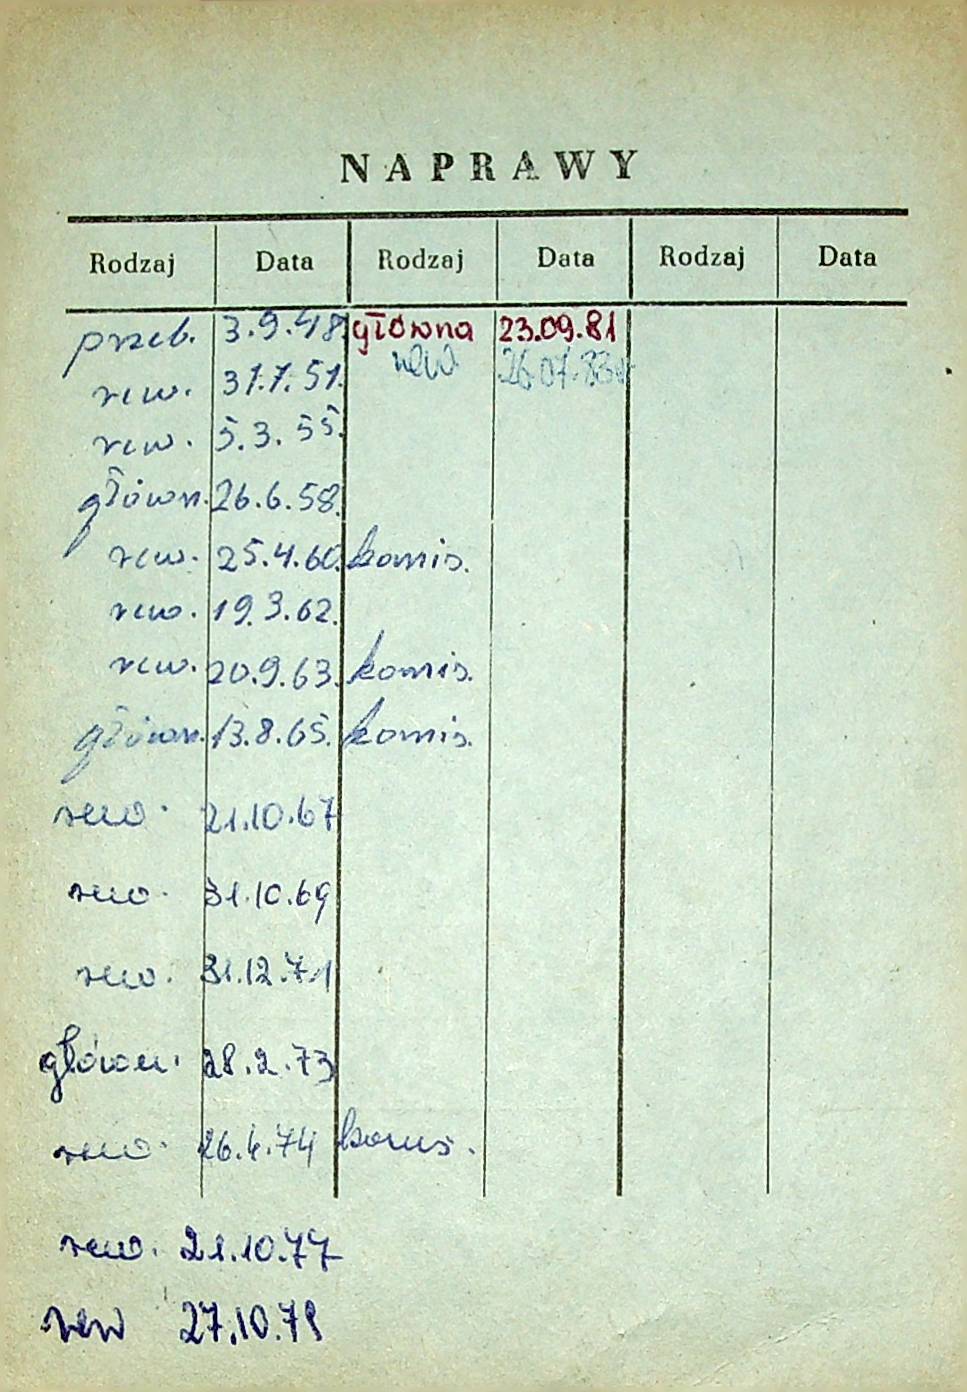 NAPRAWY
Rodzaj Data Rodzaj Data Rodzaj Data
przeb. 3.9.48. główna 23.09.81
rew. 31.7.51. rew. 26.07.83r
rew. 5.3.55.
główn. 26.6.58.
rew. 25.4.60. komis.
rew. 19.3.62.
rew. 20.9.63. komis.
główn. 13.8.65. komis.
rew. 21.10.67
rew. 31.10.69
rew. 31.12.71
główn. 28.2.73
rew. 26.4.74 komis.
rew. 21.10.77
rew 27.10.79